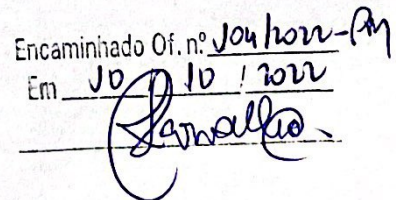 Encaminhado Of. n.º 104/2022-PM
Em 10 / 10 / 2022
Carvalho.